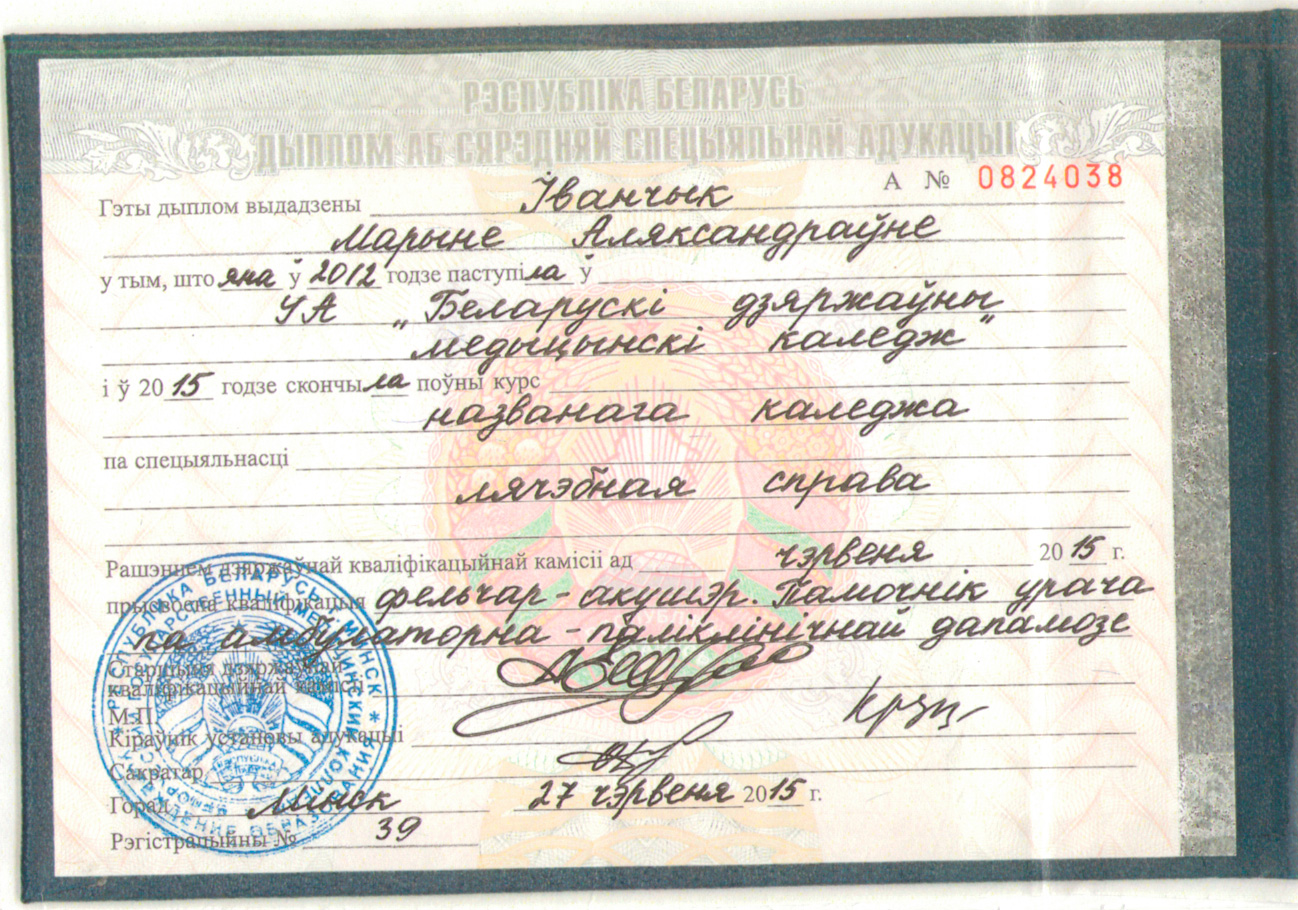 РЭСПУБЛІКА БЕЛАРУСЬ
ДЫПЛОМ АБ СЯРЭДНЯЙ СПЕЦЫЯЛЬНАЙ АДУКАЦЫІ
А № 0824038
Гэты дыплом выдадзены Іванчык
Марыне Аляксандраўне
у тым, што яна ў 2012 годзе паступіла ў
УА „Беларускі дзяржаўны
медыцынскі каледж"
і ў 2015 годзе скончыла поўны курс
названага каледжа
па спецыяльнасці
лячэбная справа
Рашэннем дзяржаўнай кваліфікацыйнай камісіі ад чэрвеня 2015 г.
прысвоена кваліфікацыя фельчар-акушэр. Памочнік урача
па амбулаторна-паліклінічнай дапамозе
Старшыня дзяржаўнай
кваліфікацыйнай камісіі
М.П.
Кіраўнік установы адукацыі
Сакратар
Горад Мінск 27 чэрвеня 2015 г.
Рэгістрацыйны № 39